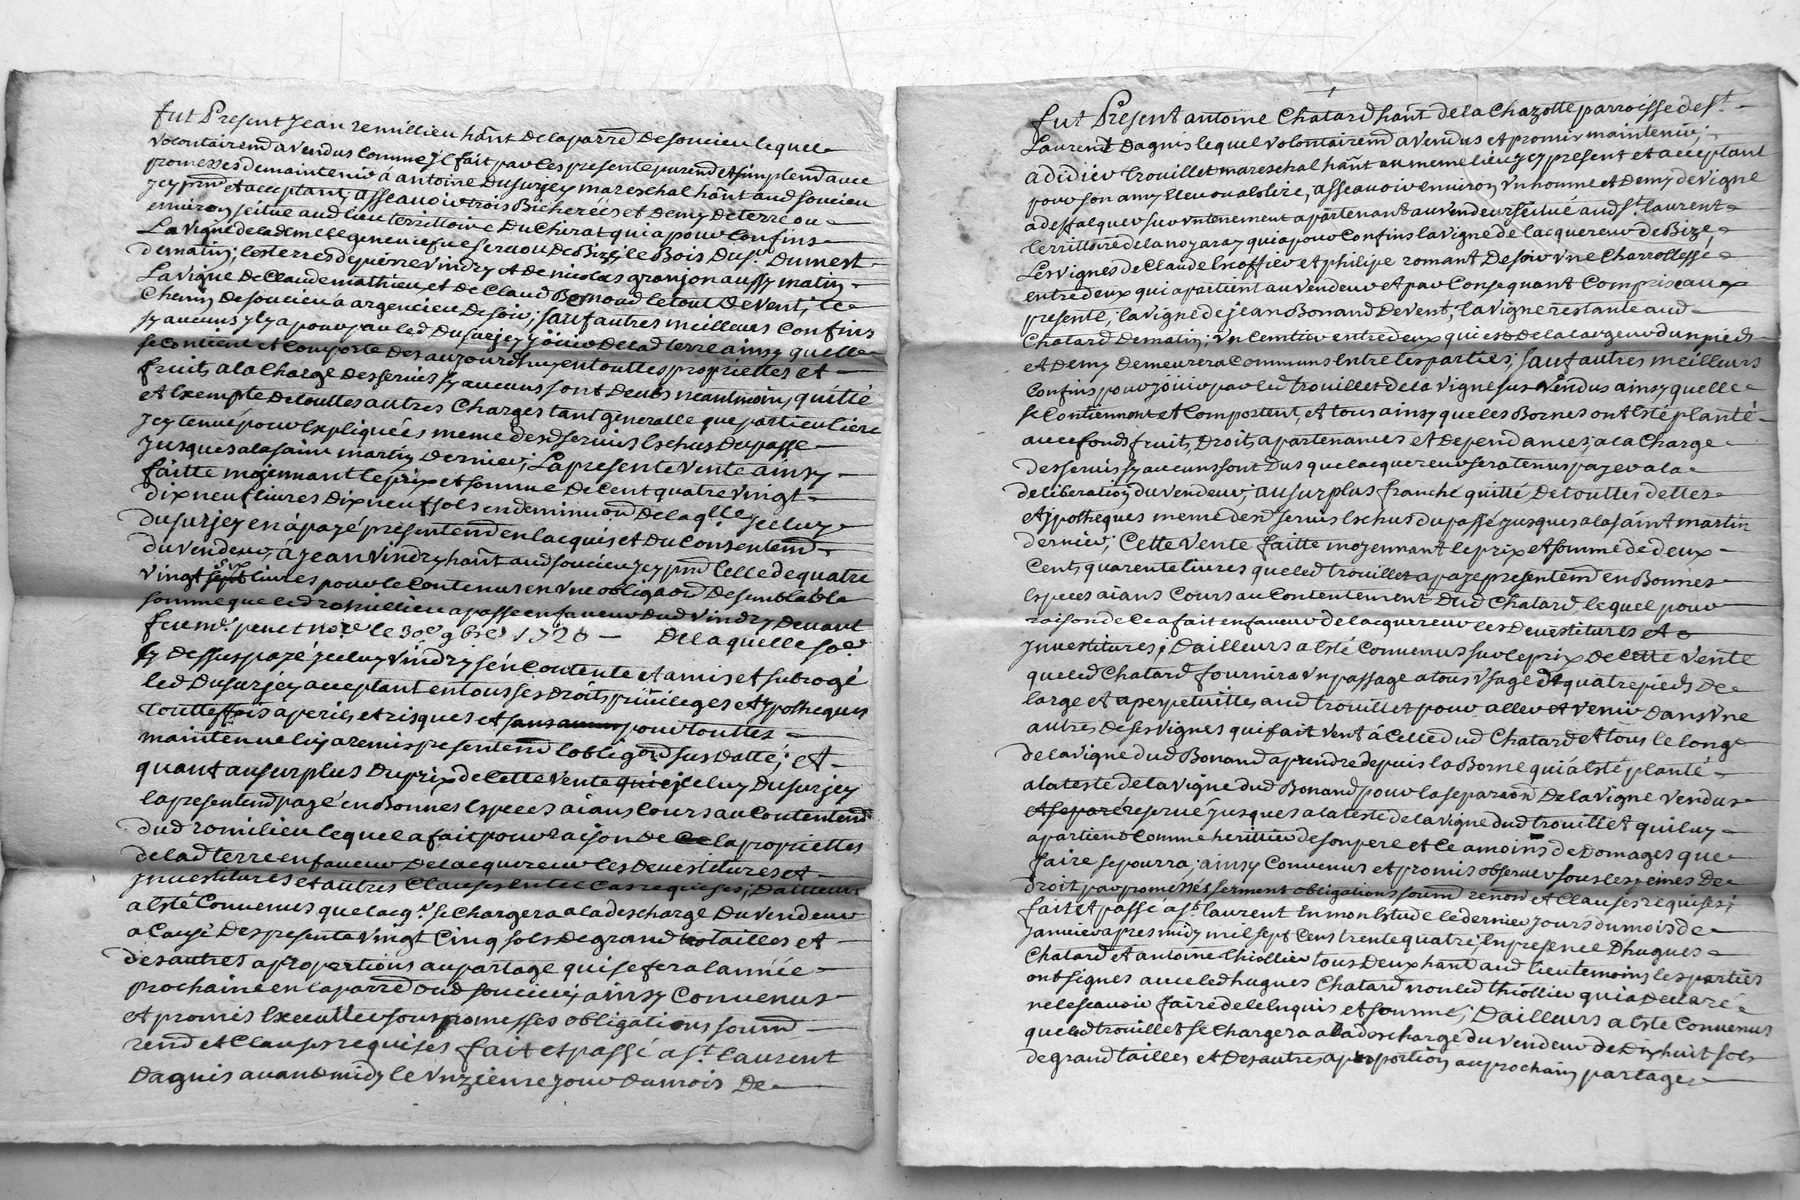 fut Present Jean remillieu hãnt de la parrẽ de soucieu lequel
volontairemẽ a vendus comme jl fait par ces presente puremẽ et simplemẽ avec
promesses de maintenir a antoine Dusurjey mareschal hãnt aud soucieu
jcy pñt et acceptant, asseavoir trois Bicherées et demy de terre ou
environ scitué aud lieu territtoire du Chirat qui a pour Confins
La vigne de la de bize le Bois du sr Dumest
de matin; les terres de pierre vindry et de nicolas granjon aussy matin
La vigne de Claude mathieu et de Claud Bonnoud le tout de vent, le
Chemin de soucieu a argencieu de soir; sauf autres meilleurs Confins
sy aucuns jl y a pour par led Dusurjey jouir de lad terre ainsy quelle
se contient et comporte des aujourdhuy en touttes proprietter et
fruits a la Charge des servis sy aucuns sont deubs neantmoins quitté
et Exempte de touttes autres Charges tant generalle que particuliere
jcy tenué pour Expliquées meme desd servis Eschus du passe
jusques a la saint martin dernier; La presente vente ainsy
faitte mojennant le prix et somme de Cent quatre vingt
dix neuf livres dix neuf sols en deminuon de laqlle jcelluy
dusurjey en á payé presentemẽ en lacquis et du Consentemẽ
du vendeur, á Jean vindry hãnt aud soucieu jcy pñt Celle de quatre
vingt six sept livres pour le Contenus en une obligaon de semblable
somme que led romillieu a passe en faveur dud vindry devant
feu me penet nore le 30e 9bre 1728 — De laquelle soe
sy dessus payé jceluy vindry sén Contente et a mis et subrogé
led Dusurjey acceptant en tous ses droits privileges et Ypotheques
touttesfois á perils et risques et sans aucune pour touttes
maintenue luy a remis presentemẽ lobligaon sus datté; et
quant au surplus du prix de Cette vente qui est jceluy Dusurjey
la presentemẽ payé en Bonnes Espeees aians Cours au Contentemẽ
dud romilieu lequel a fait pour raison de Ce la propriettes
de lad terre en faveur de lacquereur les devestitures et
jnvestitures et autres Clauses En tel Cas requises; Dailleurs
a Esté Convenus que lacqr se Chargera a la descharge du vendeur
a Causé des presente vingt Cinq sols de grand tailles et
des autres a proportions au partage qui se fera lannée
prochaine en la parrẽ dud soucieu; ainsy Convenus
et promis Executter sous promesses obligations soumẽ
renõ et Clauses requises fait et passé a St. Laurent
Dagnis avant midy le unzieme jour du mois de
fut Present antoine Chatard hãnt de la Chazotte parroisse de St.
Laurent Dagnis lequel volontairemẽ a vendus et promis maintenir
a didier trouillet mareschal hãnt au meme lieu jcy present et acceptant
pour son amy Eleu ou a Eslire, asseavoir environ un homme et demy de vigne
a desfalquer sur un tenement apartenant au vendeur scitué aud St. laurent
territtoire de la noyaray qui a pour Confins la vigne de lacquereur de Bize,
Les vignes de Claude Enoffier et philipe romant de soir une Charrollesse
entre deux qui apartient au vendeur et par Consequant Comprise aux
presente, la vigne de jean Bonand de vent, la vigne restante aud
Chatard de matin; un sentier entre deux qui est de la largeur dun pied
et demy demeurera Communs Entre les parties; sauf autres meilleurs
Confins pour jouir par led trouillet de la vigne sus vendus ainsy quelle
se Contiennent et Comportent, et tous ainsy que les Bornes ont Esté planté
avec fonds fruits, droits apartenances et dependances; a la Charge
des servis sy aucuns sont dus que lacquereur sera tenus payer a la
deliberation du vendeur; au surplus franche quitté de touttes dettes
et ypotheques meme desd servis Eschus du passé jusques a la saint martin
dernier; Cette vente faitte moyennant le prix et somme de deux
Cents quarente livres que led trouillet a payé presentemẽ en Bonnes
Especes aians Cours au Contentement dud Chatard lequel pour
raison de ce a fait en faveur de lacquereur les devestitures et
jnvestitures, Dailleurs a Esté Convenus sur le prix de Cette vente
que led Chatard fournira un passage a tous usage de quatre pieds de
large et a perpetuittes aud trouillet pour aller et venir dans une
autres de ses vignes qui fait vent á Celle dud Chatard et tous le long
de la vigne dud Bonand a prendre depuis la Borne qui á Esté planté
a la teste de la vigne dud Bonand pour la separaon de la vigne vendus
et separé reservé jusques a la teste de la vigne dud trouillet qui luy
apartient Comme herittier de son pere et le a moins de domages que
faire se pourra; ainsy Convenus et promis observer sous les peines de
droit par promesses serment obligations soumẽ renonõ et Clauses requises;
fait et passé a St. laurent En mon Estude le dernier jours du mois de
janvier apres midy mil sept Cens trente quatre, En presence dhugues
Chatard et antoine thiollier tous deux hãnt aud lieu temoins les parties
ont signes avec led hugues Chatard non led thiollier qui a declaré
ne le scavoir faire de le Enquis et sommé; Dailleurs a Esté Convenus
que led trouillet se Chargera a la descharge du vendeur de dix huit sols
de grand tailles et des autres a proportion au prochain partage